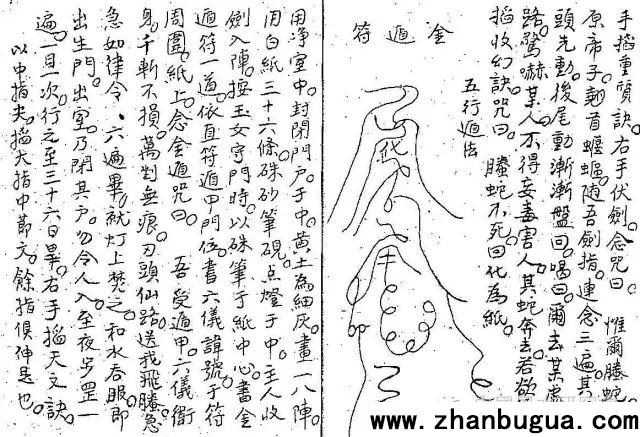 手搯重質訣右手伏劍念咒曰。惟爾螣蛇
原帝子。翹首蝘蝠随吾劍指。連念三遍。其
頭先動。後尾動漸漸盤回。喝曰。爾去某處
路驚嚇某人。不得妄毒害人。其蛇奔去若欲
搯收幻訣咒曰。螣蛇不死。回化為紙。
五行遁法
金遁符
用淨室中。封閉門戶。于中黄土為細灰。畫一八陣。
用白紙三十六條。硃砂筆硯。点燈于中。主人收
劍入陣。按玉女守門時。以硃筆于紙中心。書金
遁符一道。依直符遁甲門位。書六儀諱號于符
周圍。紙上。念金遁咒曰。吾受遁甲。六儀衛
身。千斬不損。萬割無痕。刃頭仙路。送我飛騰。急
急如律令。六遍畢。就灯上焚之。和水吞服。即
出生門。出室。乃閉其戶。勿令人入。至夜步罡一
遍。一日一次。行之至三十六日畢。右手搯天文訣。
以中指尖。搯大指中節文。餘指俱伸是也。
www.zhanbugua.com